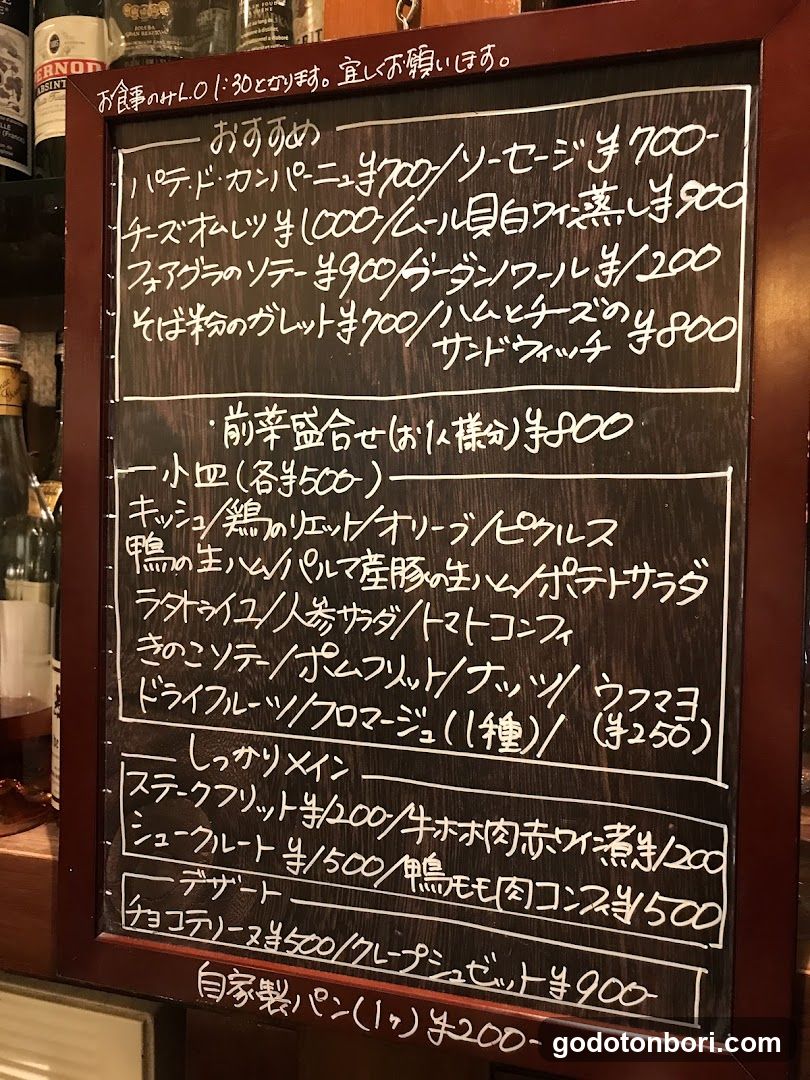 お食事のみL.O 1:30となります。宜しくお願いします。
おすすめ
パテ・ド・カンパーニュ¥700-/ソーセージ¥700-
チーズオムレツ¥1000-/ムール貝白ワイン蒸し¥900
フォアグラのソテー¥900/ブーダンノワール¥1200
そば粉のガレット¥700/ハムとチーズの
サンドウィッチ ¥800
・前菜盛合せ(お1人様分)¥800
小皿(各¥500-)
キッシュ/鶏のリエット/オリーブ/ピクルス
鴨の生ハム/パルマ産豚の生ハム/ポテトサラダ
ラタトゥイユ/人参サラダ/トマトコンフィ
きのこソテー/ポムフリット/ナッツ/ ウフマヨ
ドライフルーツ/フロマージュ(1種)/ (¥250)
しっかりメイン
ステークフリット¥1200-/牛ホホ肉赤ワイン煮¥1200
シュークルート ¥1500/鴨モモ肉コンフィ¥1500
デザート
チョコテリーヌ¥500/クレープシュゼット¥900-
自家製パン(1ヶ)¥200-
godotonbori.com